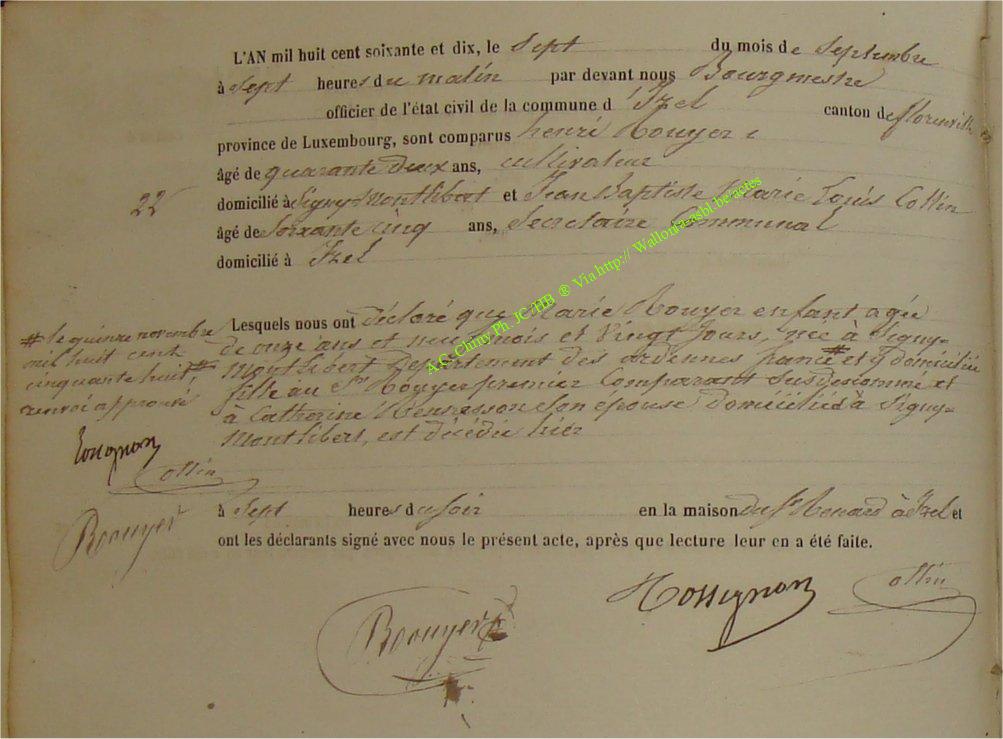 L'AN mil huit cent soixante et dix, le Sept du mois de Septembre
à Sept heures du matin par devant nous Bourgmestre
officier de l'état civil de la commune d'Izel canton de florenville
province de Luxembourg, sont comparus henri Rouyer
âgé de quarante deux ans, cultivateur
22
domicilié à Signy-Montlibert et Jean Baptiste Marie Louis Collin
âgé de Soixante cinq ans, Secretaire Communal
domicilié à Izel
Lesquels nous ont déclaré que Marie Rouyer enfant agée
de onze ans et neuf mois et Vingt Jours, née à Signy-
Montlibert Departement des ardennes france # et y domiciliée
fille au Sr Rouyer premier Comparant susdenommé et
à Catherine son épouse Domiciliés à Signy-
Montlibert, est décédée hier
# le quinze novembre
mil huit cent
cinquante huit, #
renvoi approuvé
Rossignon
Collin
Roouyer
à Sept heures du Soir en la maison du Sr Renard à Izel et
ont les déclarants signé avec nous le présent acte, après que lecture leur en a été faite.
Roouyer
Rossignon
Collin
A.G. Chiny Ph. JC/HB ® Via http:// Wallonia-asbl.be/actes